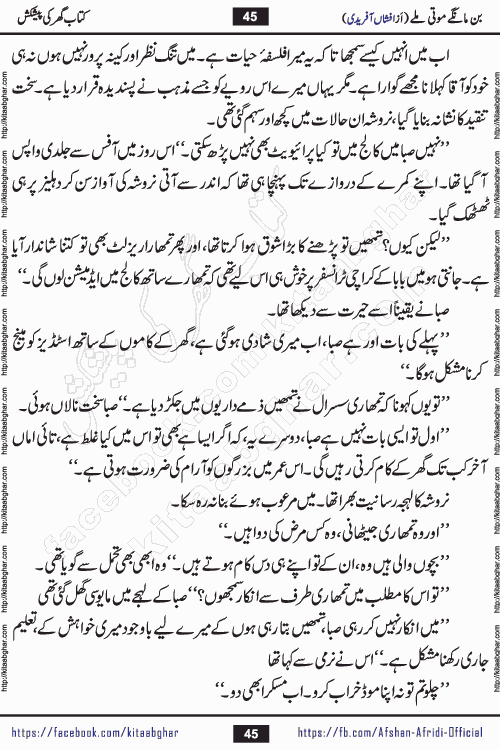 بن مانگے موتی ملے (از افشاں آفریدی) 45 کتاب گھر کی پیشکش
اب میں انہیں کیسے سمجھاتا کہ یہ میرا فلسفۂ حیات ہے۔ میں تنگ نظر اور کینہ پرور نہیں ہوں نہ ہی
خود کو آقا کہلانا مجھے گوارا ہے۔ مگر یہاں میرے اس رویے کو جسے مذہب نے پسندیدہ قرار دیا ہے۔ سخت
تنقید کا نشانہ بنایا گیا، نروشہ ان حالات میں کچھ اور سہم گئی تھی۔
’’نہیں صبا میں کالج میں تو کیا پرائیویٹ بھی نہیں پڑھ سکتی۔‘‘ اس روز میں آفس سے جلدی واپس
آ گیا تھا۔ اپنے کمرے کے دروازے تک پہنچا ہی تھا کہ اندر سے آتی نروشہ کی آواز سن کر دہلیز پر ہی
ٹھٹھک گیا۔
’’لیکن کیوں؟ تمھیں تو پڑھنے کا بڑا شوق ہوا کرتا تھا، اور پھر تمھارا ریزلٹ بھی تو کتنا شاندار آیا
ہے۔ جانتی ہو میں بابا کے کراچی ٹرانسفر پر خوش ہی اس لیے تھی کہ تمھارے ساتھ کالج میں ایڈمیشن لوں گی۔‘‘
صبا نے یقیناً اسے حیرت سے دیکھا تھا۔
’’پہلے کی بات اور ہے صبا، اب میری شادی ہو گئی ہے، گھر کے کاموں کے ساتھ اسٹڈیز کو مینج
کرنا مشکل ہو گا۔‘‘
’’تو یوں کہو نا کہ تمھاری سسرال نے تمھیں ذمے داریوں میں جکڑ دیا ہے۔‘‘ صبا سخت نالاں ہوئی۔
’’اول تو ایسی بات نہیں ہے صبا، دوسرے یہ، کہ اگر ایسا ہے بھی تو اس میں کیا غلط ہے، تائی اماں
آخر کب تک گھر کے کام کرتی رہیں گی۔ اس عمر میں بزرگوں کو آرام کی ضرورت ہوتی ہے۔‘‘
نروشہ کا لہجہ رسانیت بھرا تھا۔ میں مرعوب ہوئے بنا نہ رہ سکا۔
’’اور وہ تمھاری جیٹھانی، وہ کس مرض کی دوا ہیں۔‘‘
’’بچوں والی ہیں وہ، ان کے تو اپنے ہی دس کام ہوتے ہیں۔‘‘ وہ ابھی بھی تحمل سے گویا تھی۔
’’تو اس کا مطلب میں تمھاری طرف سے انکار سمجھوں؟‘‘ صبا کے لہجے میں مایوسی گھل گئی تھی
’’میں انکار نہیں کر رہی صبا، تمھیں بتا رہی ہوں کے میرے لیے باوجود میری خواہش کے، تعلیم
جاری رکھنا مشکل ہے۔‘‘ اس نے نرمی سے کہا تھا
’’چلو تم تو نہ اپنا موڈ خراب کرو۔ اب مسکرا بھی دو۔‘‘
https://facebook.com/kitaabghar 45 https://fb.com/Afshan-Afridi-Official
http://kitaabghar.com
facebook.com/kitaabghar